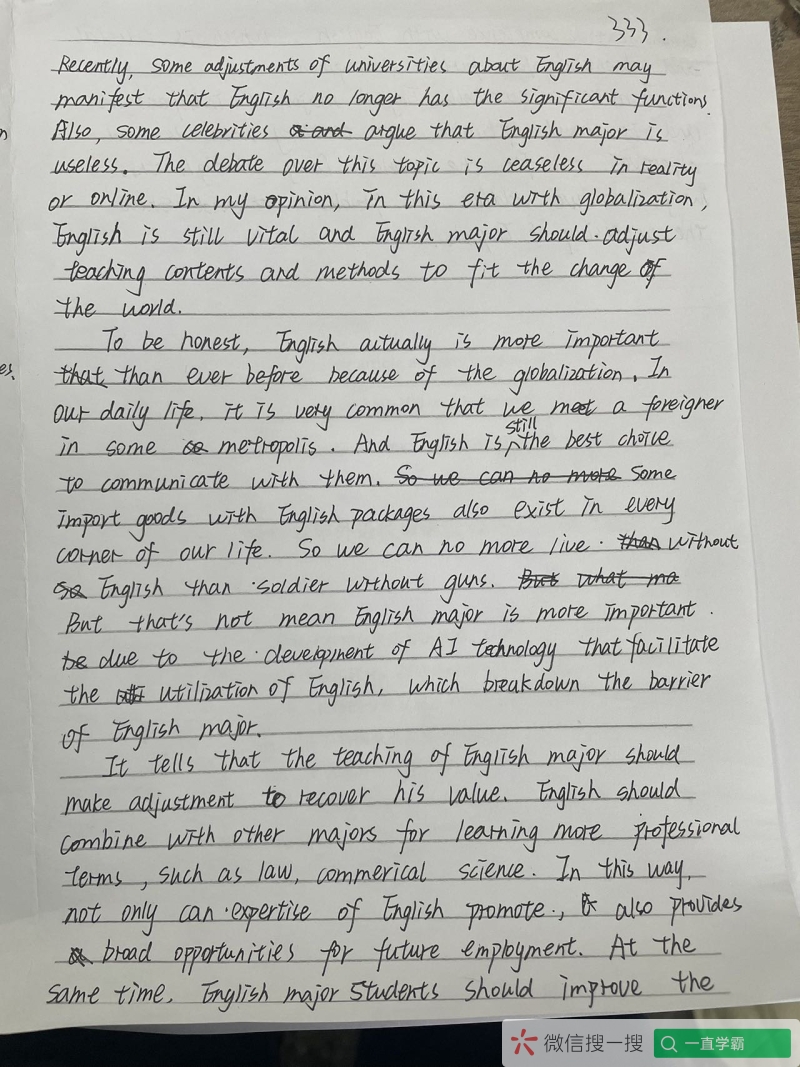 333.
Recently, some adjustments of universities about English may
manifest that English no longer has the significant functions.
Also, some celebrities argue that English major is
useless. The debate over this topic is ceaseless in reality
or online. In my opinion, in this era with globalization,
English is still vital and English major should adjust
teaching contents and methods to fit the change of
the world.
To be honest, English actually is more important
than ever before because of the globalization. In
our daily life, it is very common that we meet a foreigner
in some metropolis. And English is still the best choice
to communicate with them. Some
import goods with English packages also exist in every
corner of our life. So we can no more live without
English than soldier without guns.
But that's not mean English major is more important.
due to the development of AI technology that facilitate
the utilization of English, which breakdown the barrier
of English major.
It tells that the teaching of English major should
make adjustment to recover his value. English should
combine with other majors for learning more professional
terms, such as law, commerical science. In this way,
not only can expertise of English promote, also provides
broad opportunities for future employment. At the
same time, English major students should improve the
n
es.
微信搜一搜
一直学霸